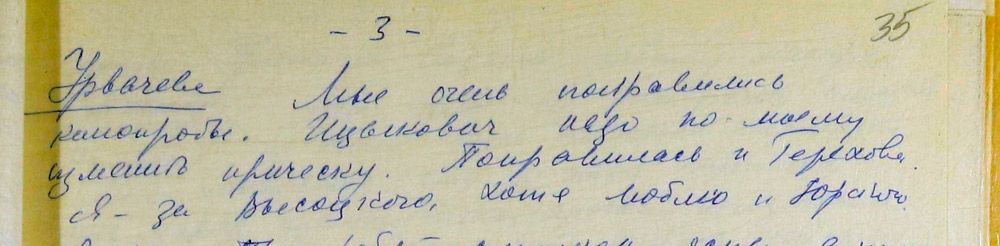 - 3 -
35
Урвачева Мне очень понравились
кинопробы. Ицыкович надо по-моему
изменить прическу. Понравилась и Терехова.
Я - за Высоцкого, хотя люблю и Юрского.